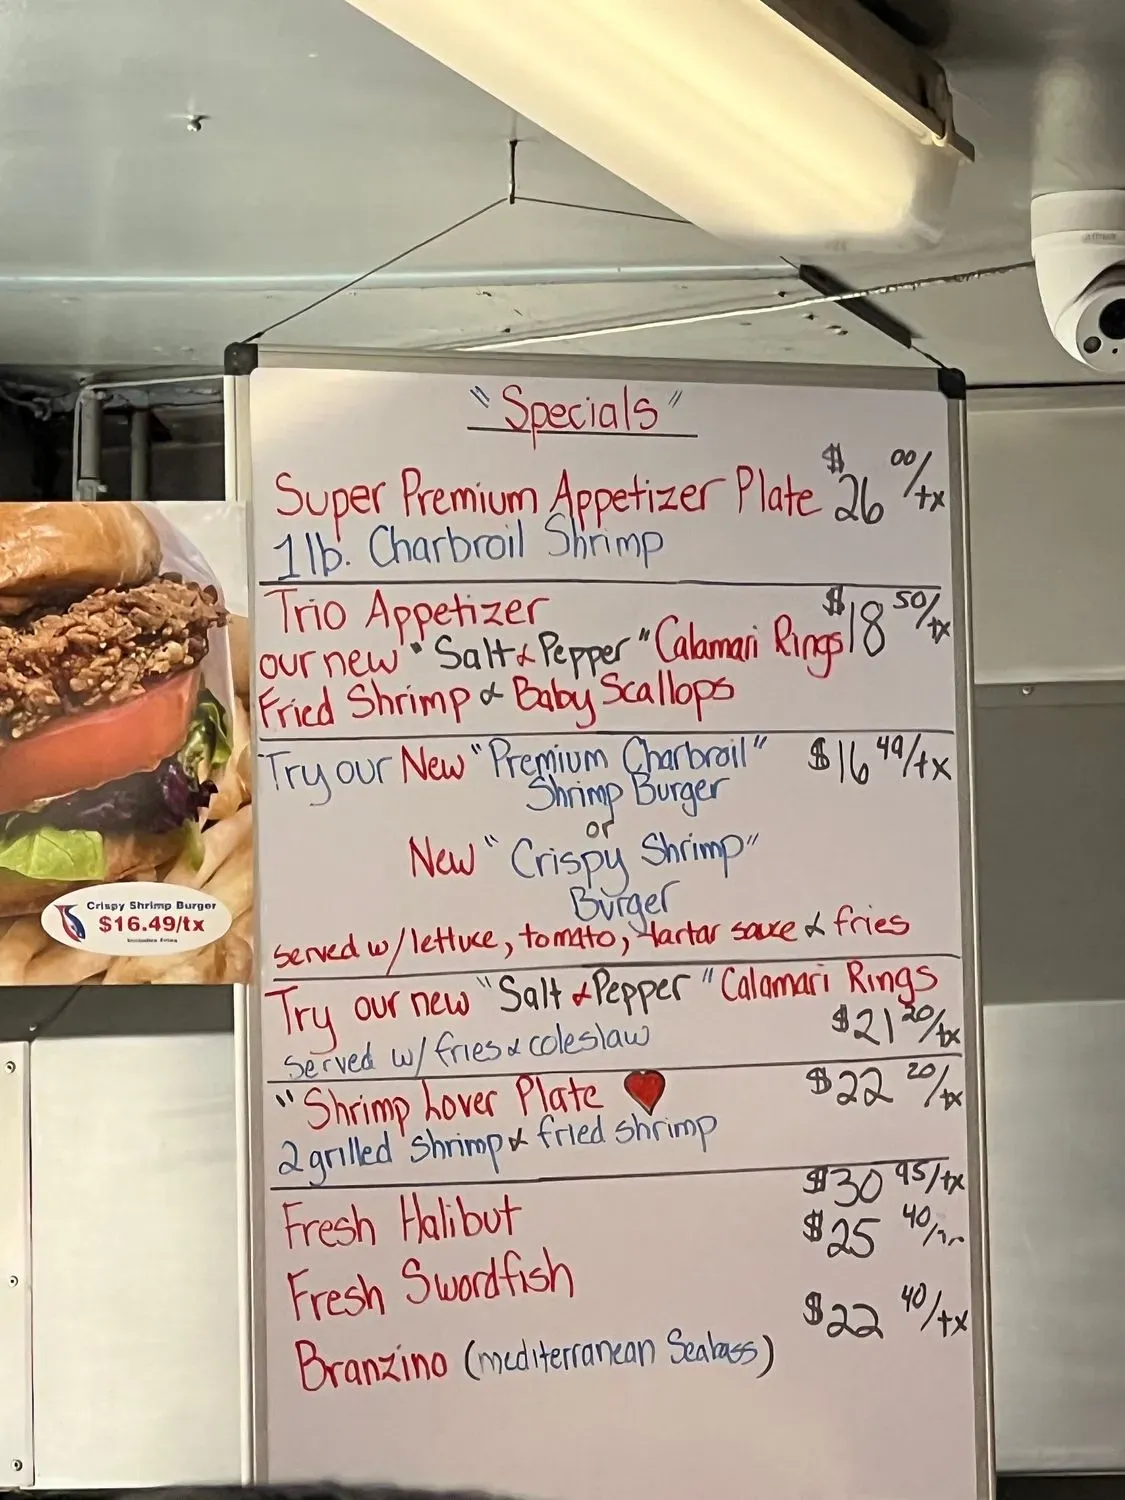 "Specials"
Super Premium Appetizer Plate $26 00/tx
1 lb. Charbroil Shrimp
Trio Appetizer $18 50/tx
our new "Salt & Pepper" Calamari Rings
Fried Shrimp & Baby Scallops
Try our New "Premium Charbroil" $16 49/tx
Shrimp Burger
or
New "Crispy Shrimp"
Burger
served w/lettuce, tomato, tartar sauce & fries
Try our new "Salt & Pepper" Calamari Rings
served w/ fries & coleslaw $21 20/tx
"Shrimp Lover Plate $22 20/tx
2 grilled shrimp & fried shrimp
Fresh Halibut $30 95/tx
Fresh Swordfish $25 40/
Branzino (mediterranean Seabass) $22 40/tx
Crispy Shrimp Burger
$16.49/tx
Includes fries